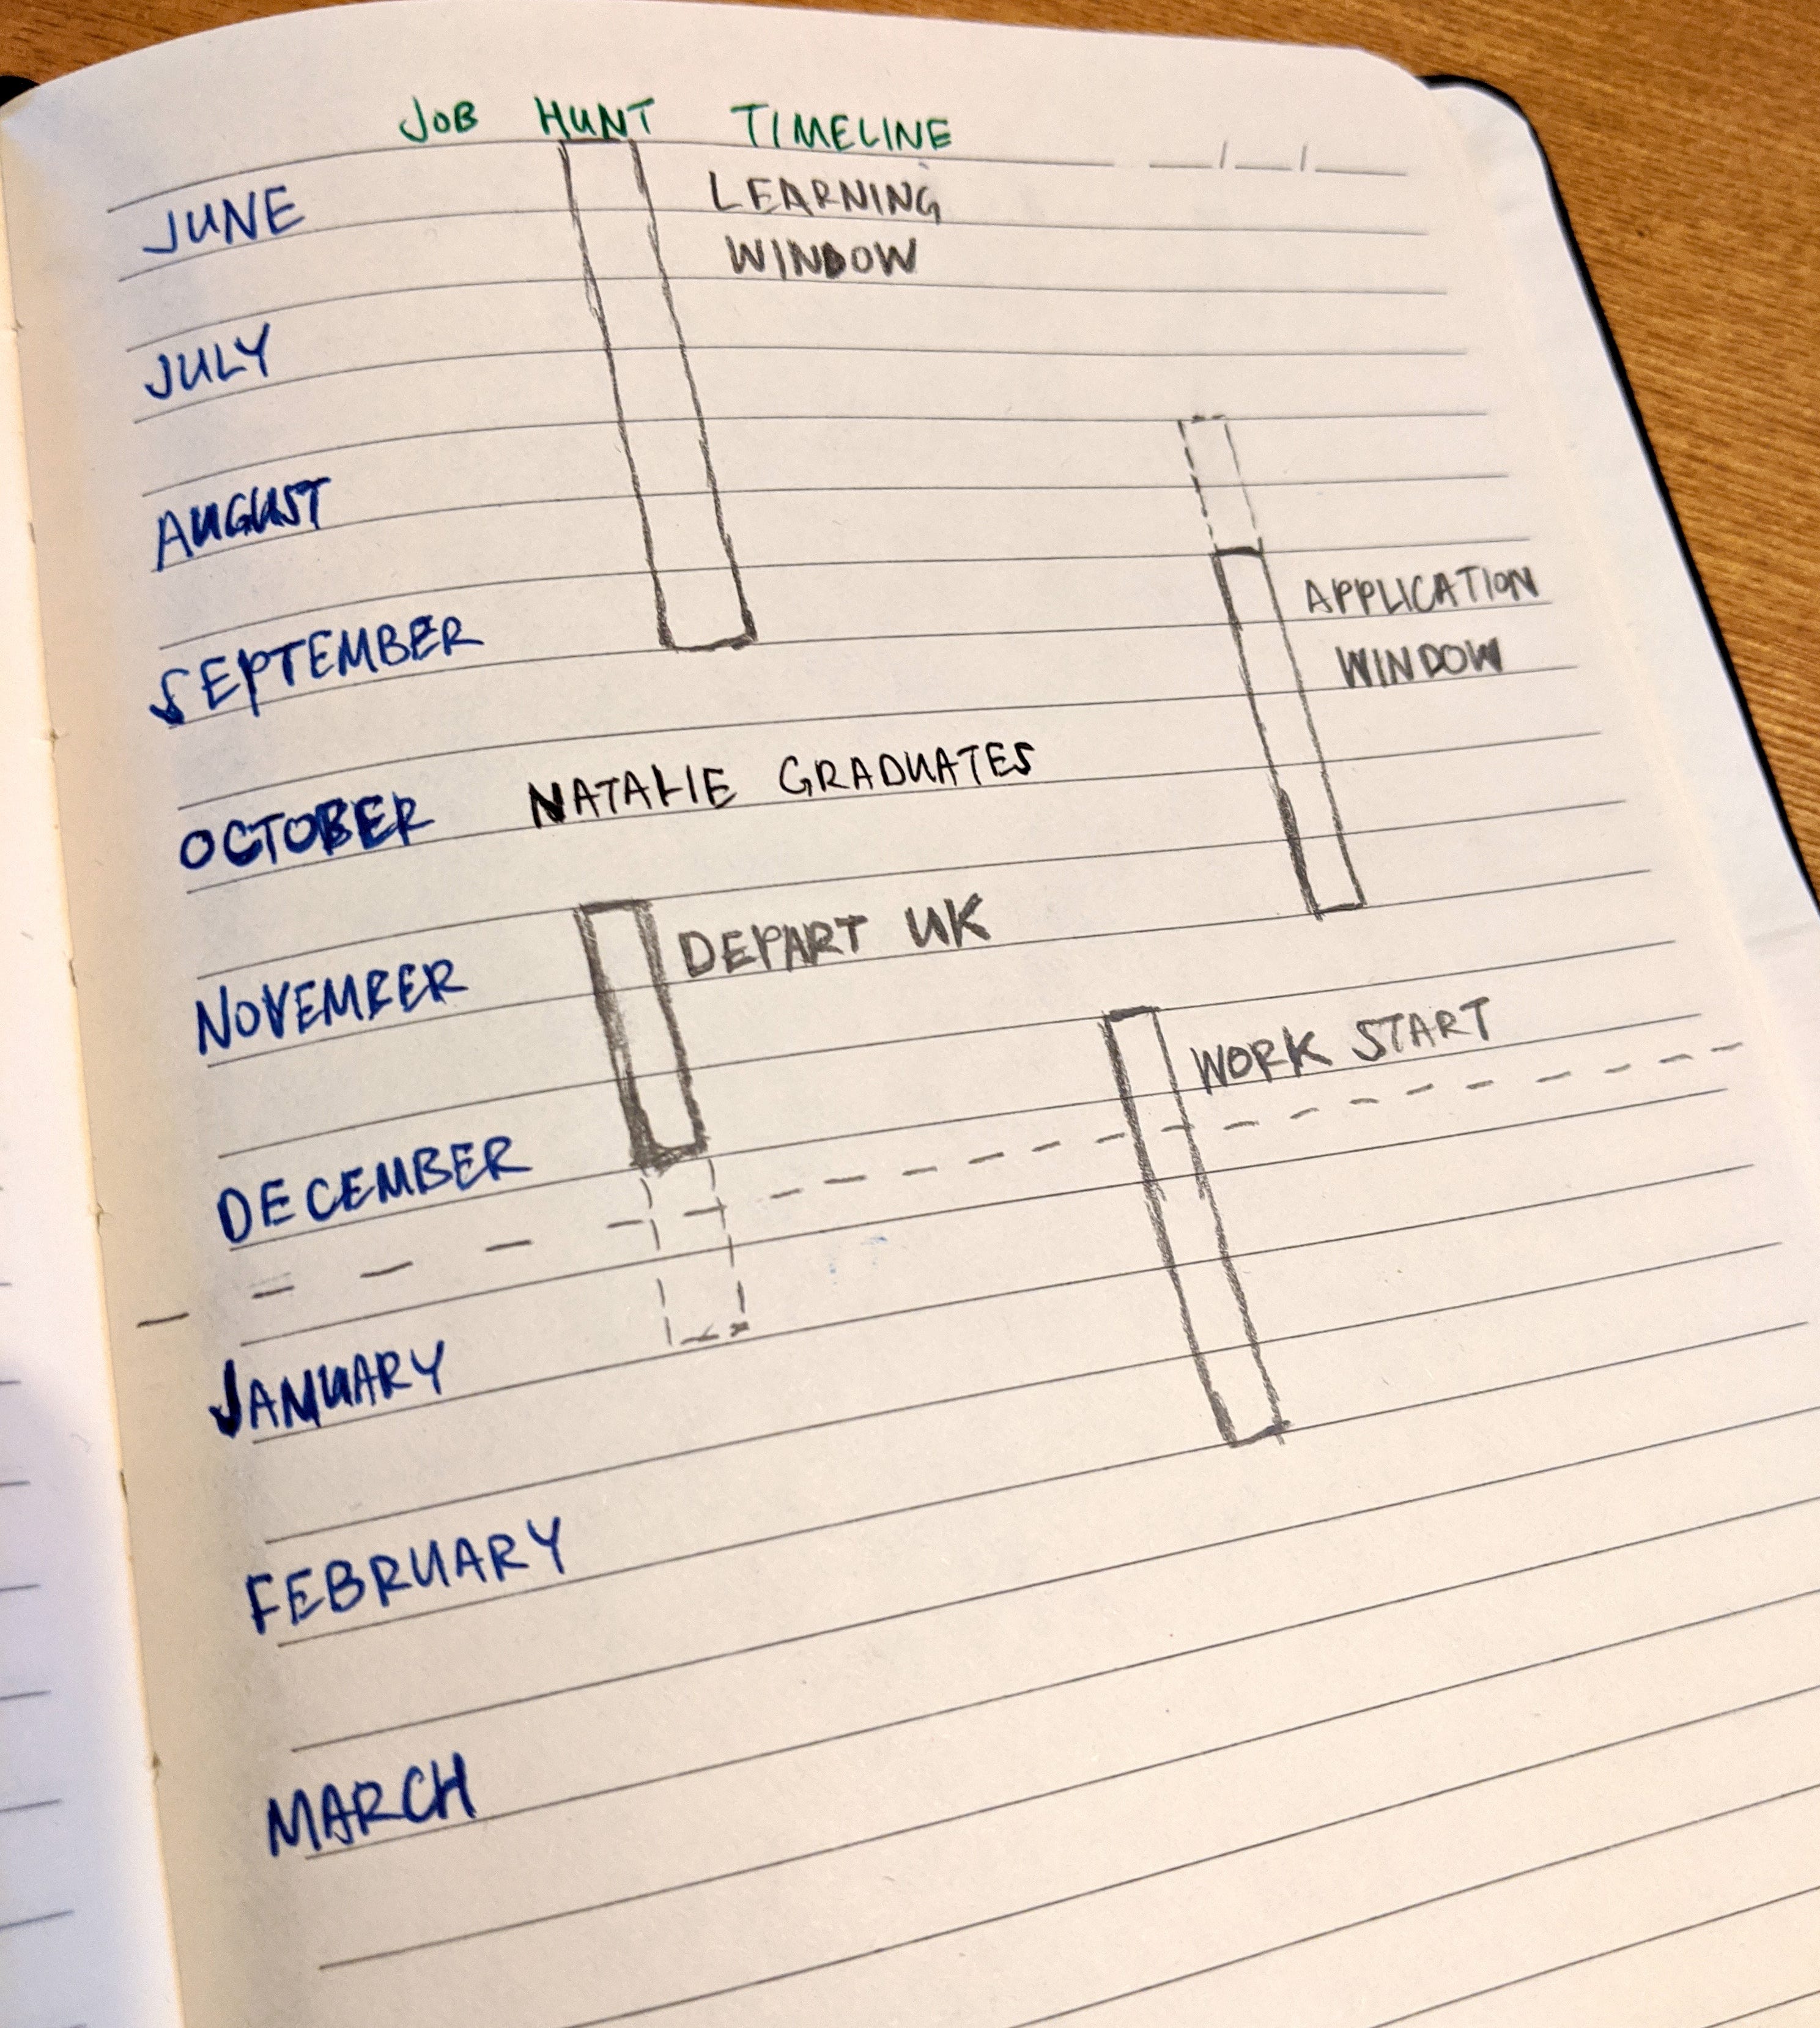 JOB HUNT TIMELINE
JUNE
LEARNING
WINDOW
JULY
AUGUST
APPLICATION
WINDOW
SEPTEMBER
OCTOBER NATALIE GRADUATES
NOVEMBER DEPART UK
WORK START
DECEMBER
JANUARY
FEBRUARY
MARCH